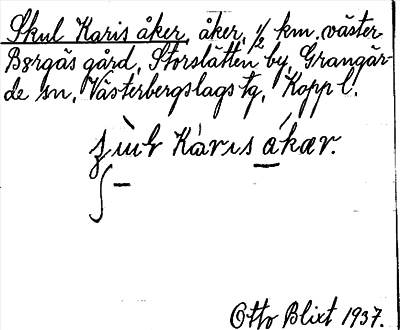 Skul Karis åker, åker, ½ km. väster
Borgås gård, Storslätten by, Grangär-
de sn, Västerbergslags tg, Kopp l.
Karis åkær.
Otto Blixt 1937.